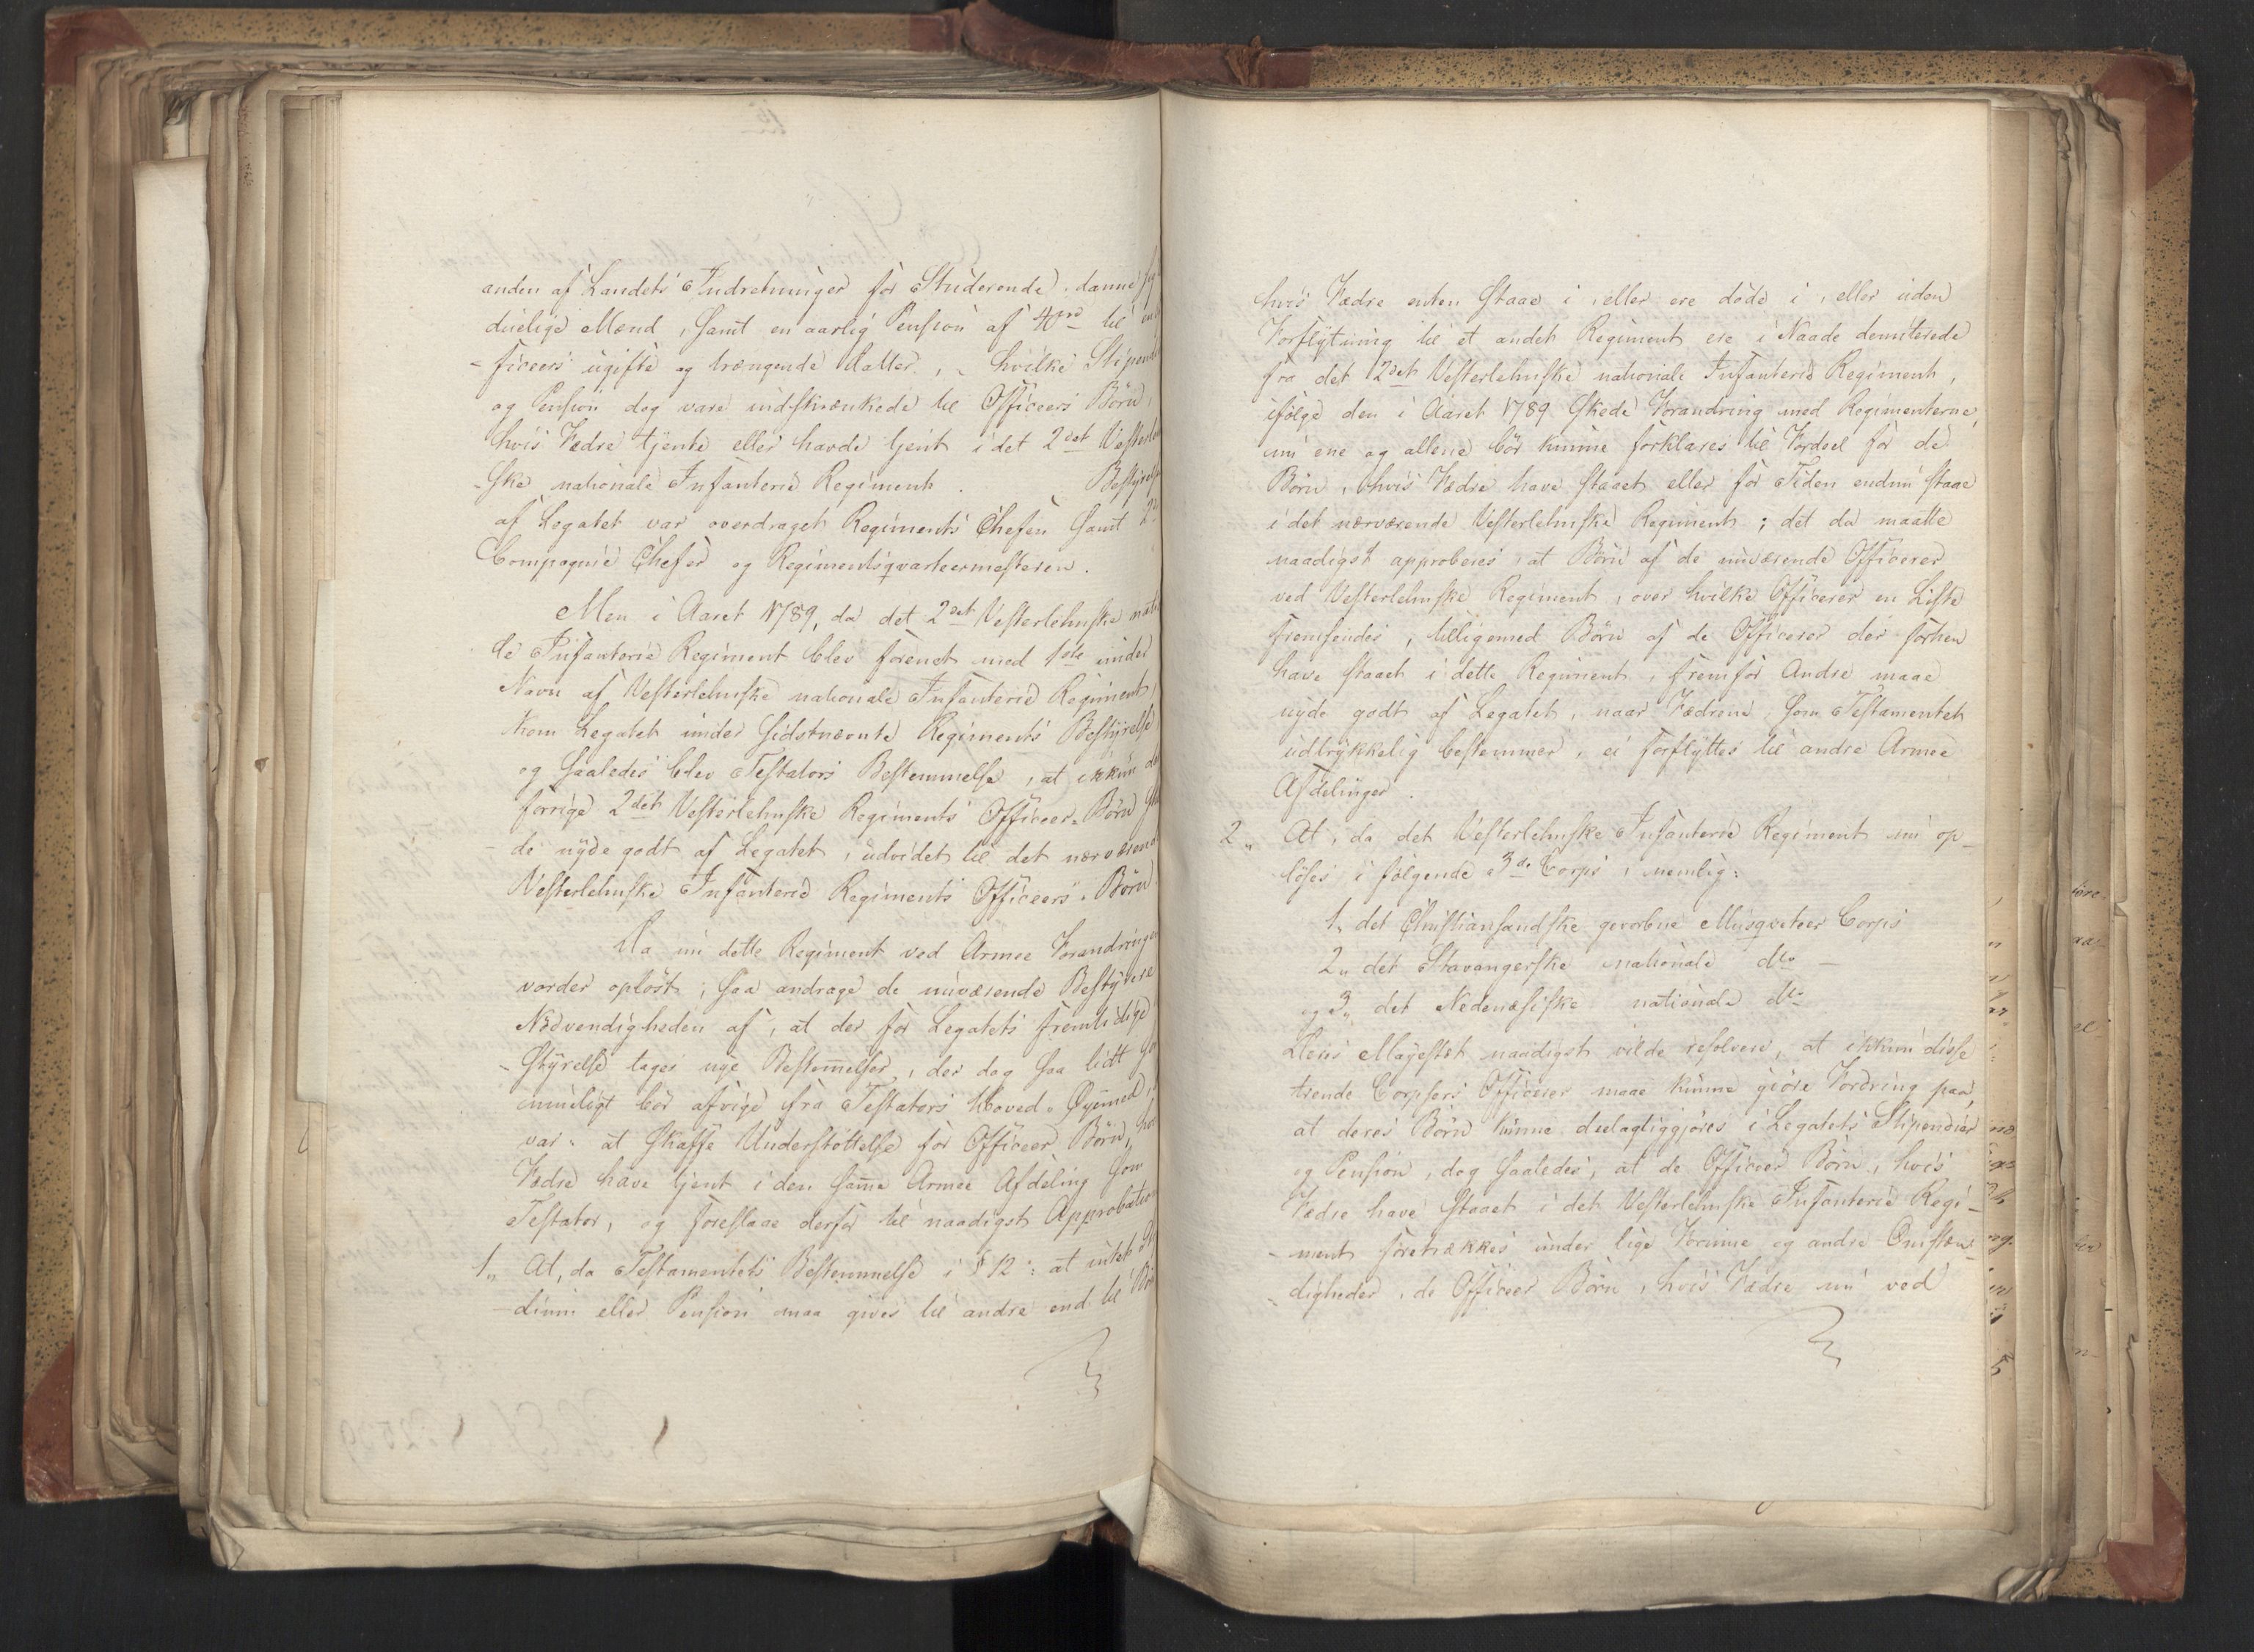 anden af Landets Indretninger for Studerende, danne sig
duelige Mænd, samt en aarlig Pension af til
ficeers ugifte og trængende Datter, hvilke Stipend
og Pension dog vare indskrænkede til Officeers Börn,
hvis Fædre tjente eller havde tjent i det 2det Vesterlen
ske nationale Infanterie Regiment. Bestyrelse
af Legatet var overdraget Regiments Chefen samt 2
Compagnie Chefer og Regimentsqvarteermesteren.
Men i Aaret 1789, da det 2det Vesterlehnske natio
le Infanterie Regiment blev forenet med 1ste under
Navn af Vesterlehnske nationale Infanterie Regiment,
kom Legatet under sidstnævnte Regiments Bestyrelse
og saaledes blev Testators Bestemmelse, at ikkun det
forrige 2det Vesterlehnske Regiments Officeer-Börn skul
de nyde godt af Legatet, udvidet til det nærværend
Vesterlehnske Infanterie Regiments Officeers-Börn.
Da nu dette Regiment ved Armee Forandringen
vorder oplöst, saa andrage de nuværende Bestyrere
Nödvendigheden af, at der for Legatets fremtidige
Styrelse tages nye Bestem̄elser, der dog saa lidt som
mueligt bör afvige fra Testators Hoved-Øyemed,
var: at skaffe Understöttelse for Officeer Börn, hvis
Fædre have tjent i den sam̄e Armee Afdeling som
Testator, og foreslaae derfor til naadigst Approbation
1„ At, da Testamentets Bestemmelse i § 12: at intet Sti
dium eller Pension maa gives til andre end til Bör
hvis Fædre enten staae i, eller ere döde i, eller uden
Forflytning til et andet Regiment ere i Naade demiterede
fra det 2det Vesterlehnske nationale Infanterie Regiment,
ifölge den i Aaret 1789 skede Forandring med Regimenterne,
nu ene og allene bör kunne forklares til Fordeel for de
Börn, hvis Fædre have staaet eller for Tiden endnu staae
i det nærværende Vesterlehnske Regiment; det da maatte
naadigst approberes, at Börn af de nuværende Officerer
ved Vesterlehnske Regiment, over hvilke Officerer en Liste
fremsendes, tilligemed Börn af de Officerer der forhen
have staaet i dette Regiment, fremfor Andre maae
nyde godt af Legatet, naar Fædrene, som Testamentet
udtrykkelig bestemmer, ei forflyttes til andre Armee
Afdelinger.
2„ At, da det Vesterlehnske Infanterie Regiment nu op-
löses i fölgende 3de Corps, nemlig:
1„ det Christiansandske gevorbne Musqveteer Corps
2„ det Stavangerske nationale do —
og 3„ det Nedenæsiske nationale do
Deres Majestæt naadigst vilde resolvere, at ikkun disse
trende Corpsers Officerer maae kunne giöre Fordring paa,
at deres Börn kunne deelagtiggjöres i Legatets Stipendier
og Pension, dog saaledes, at de Officeer Börn, hvis
Fædre have staaet i det Vesterlehnske Infanterie Regi-
ment foretrækkes under lige Formue og andre Omstæn-
digheder, de Officeer Börn, hvis Fædre nu ved